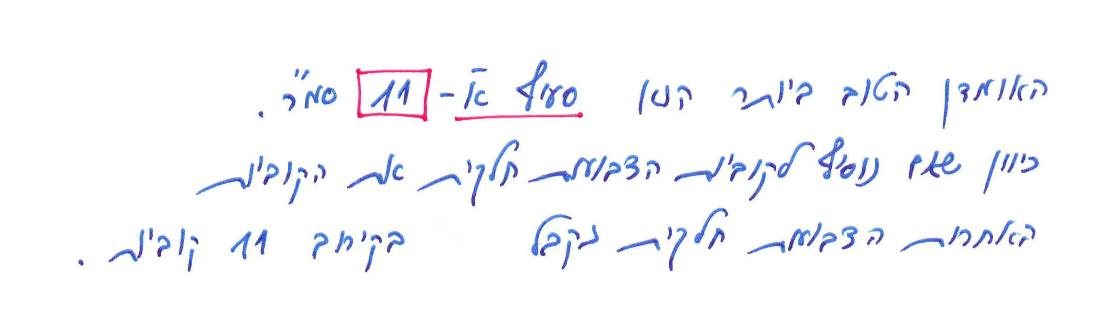 האומדן הטוב ביותר הוא סעיף א' - 11 סמ"ר.
כיוון שאם נוסיף לקוביות הצבועות חלקית את הקוביות
האחרות הצבועות חלקית נקבל בקירוב 11 קוביות.